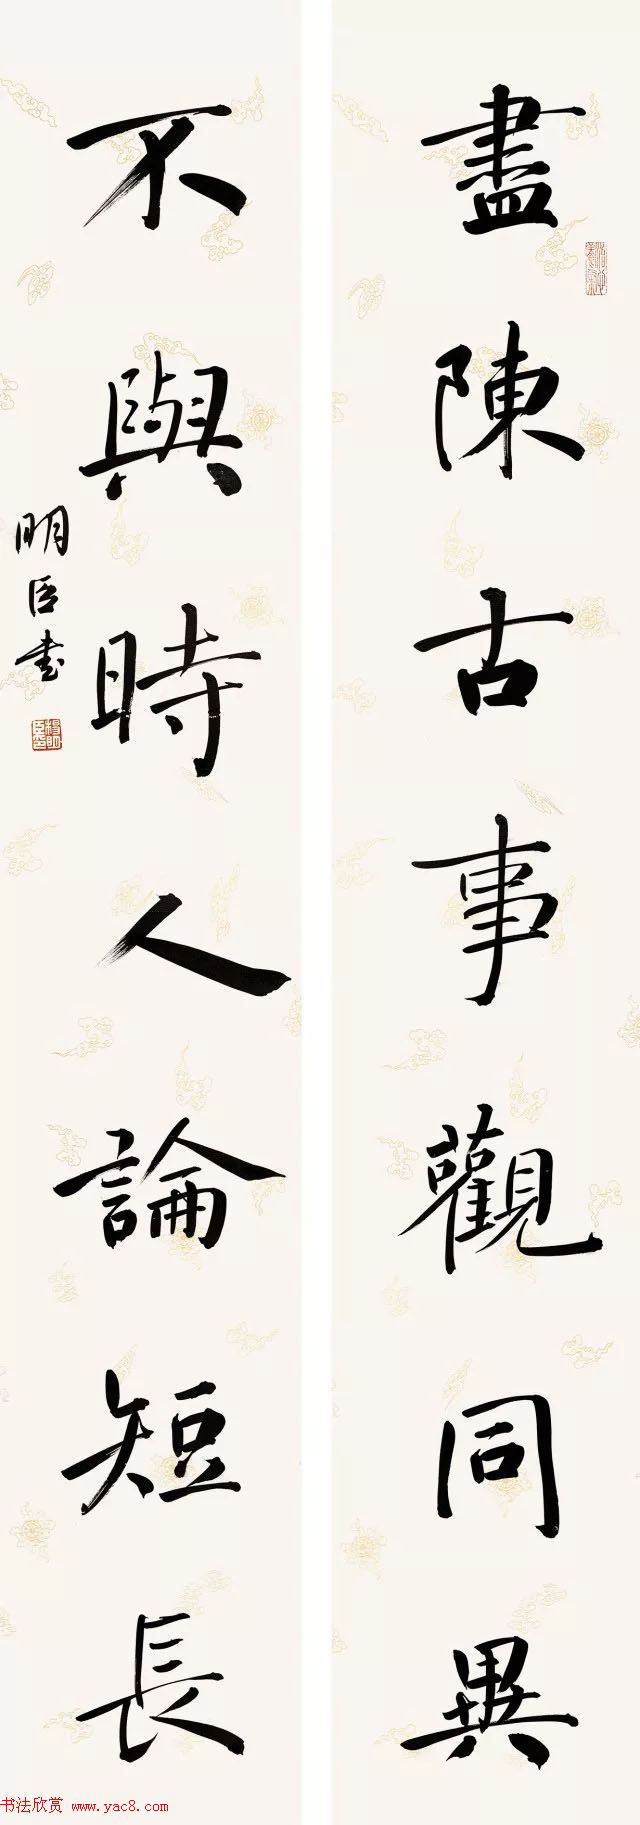 盡陳古事觀同異
不與時人論短長
明臣书
书法欣赏 www.yac8.com